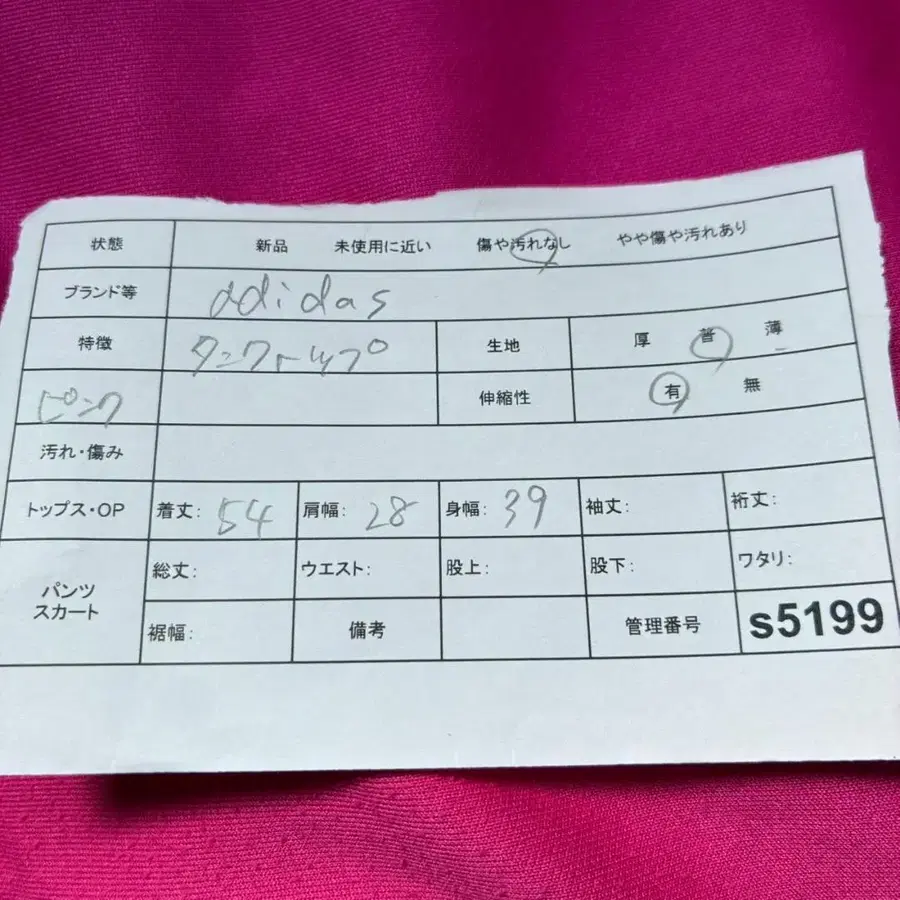 状態 新品 未使用に近い 傷や汚れなし やや傷や汚れあり
ブランド等 adidas
特徴 タンクトップ 生地 厚 普 薄
ピンク 伸縮性 有 無
汚れ・傷み
トップス・OP 着丈: 54 肩幅: 28 身幅: 39 袖丈: 裄丈:
パンツ スカート 総丈: ウエスト: 股上: 股下: ワタリ:
裾幅: 備考 管理番号 s5199